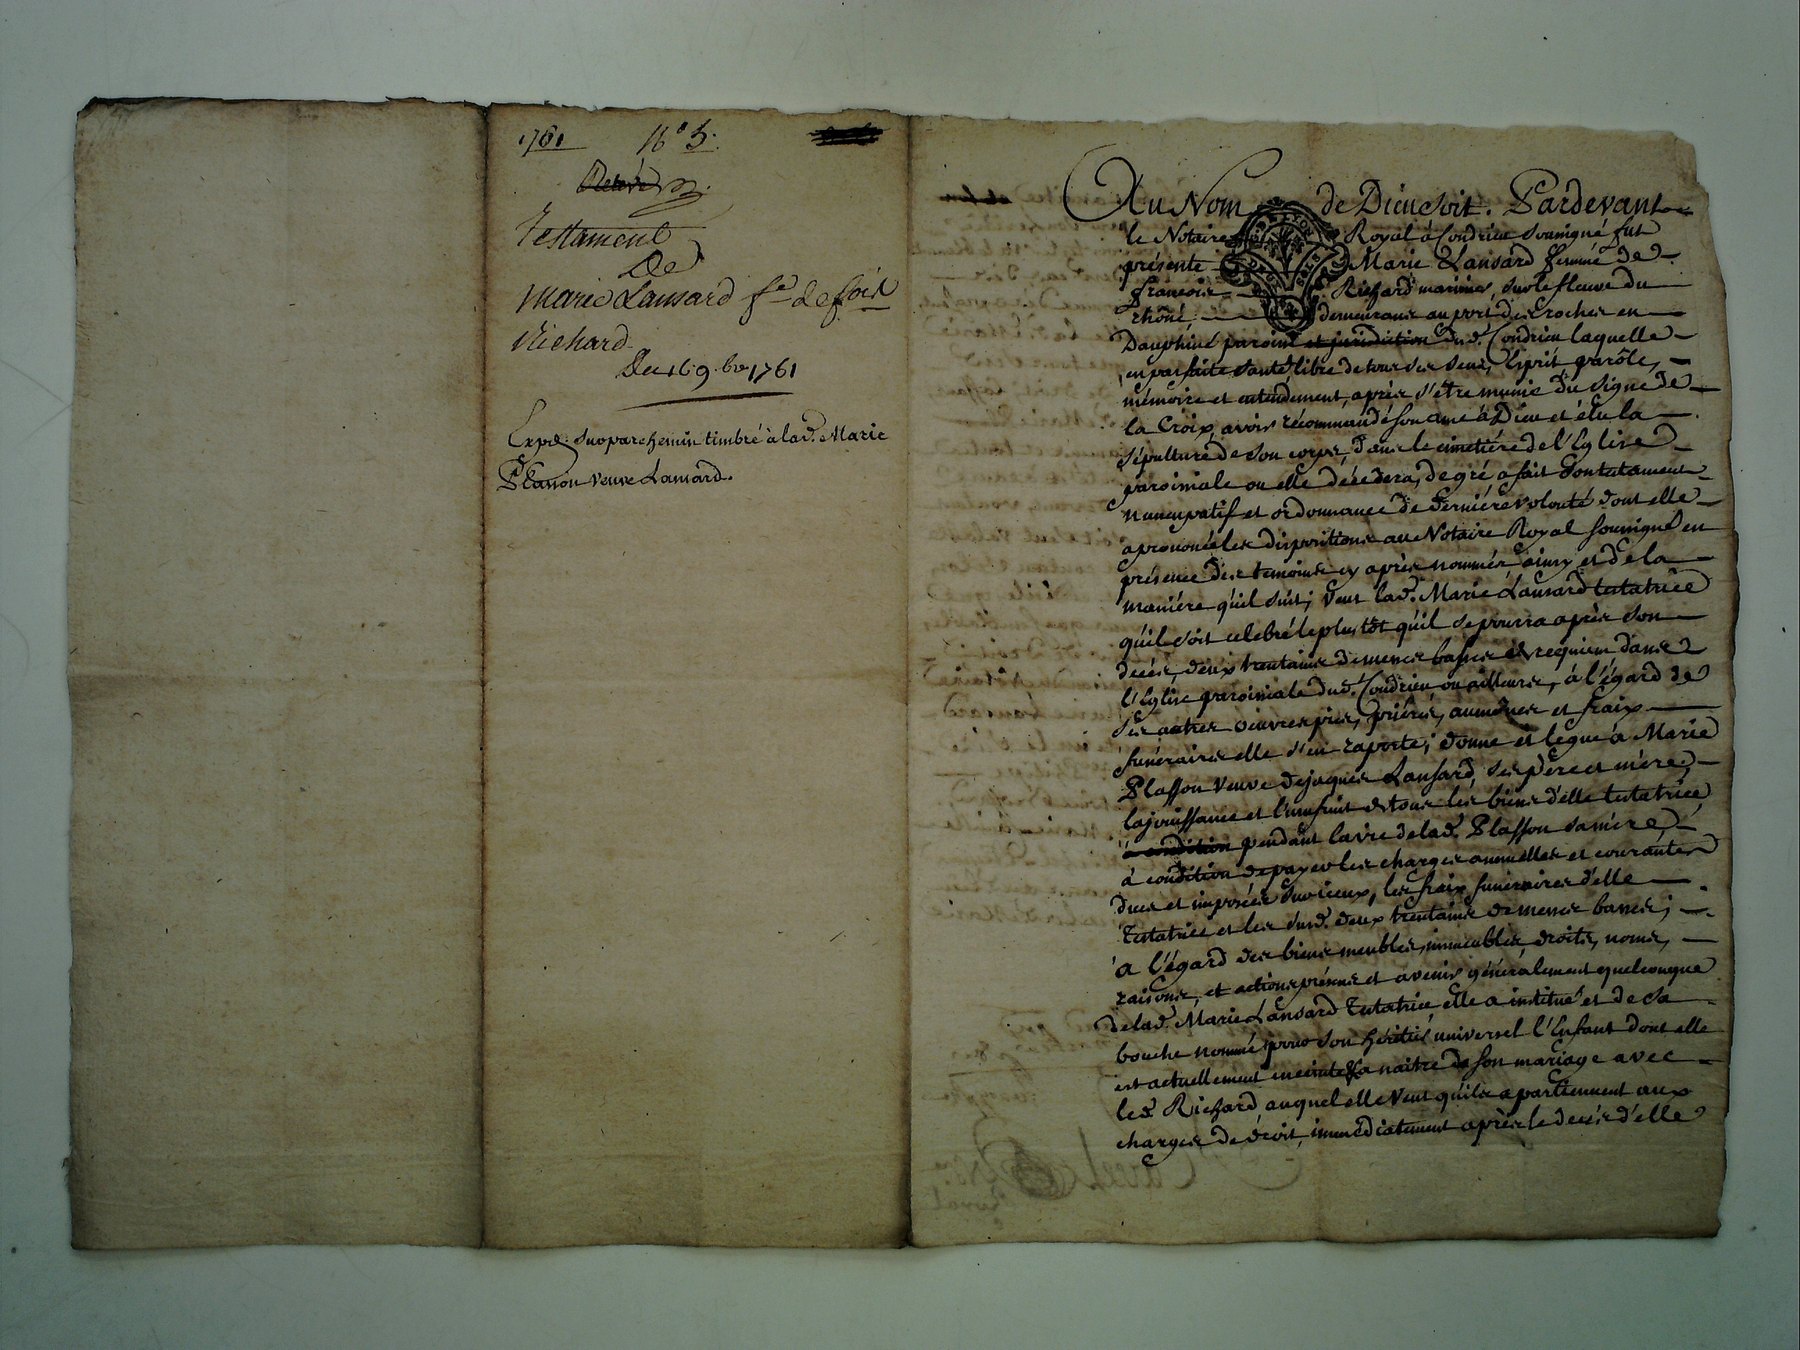 1761 N.° 5.
Testament
De
Marie Lansard fe. de fois
Richard
Du 16 9.bre 1761
Exped. sur parchemin timbré à lad.e Marie
Plasson veuve Lansard.
Au Nom de Dieu soit. Pardevant
le Notaire Royal à Condrieu soussigné fut
présente Marie Lansard femme de
françois Richard marinier, sur le fleuve du
rhône, demeurant au port des Roches en
Dauphiné paroisse et jurisdiction dud. Condrieu laquelle
en parfaite santé libre de tous ses sens, Esprit, parôle,
mémoire et entendement, après s'être munie du signe de
la Croix, avoir récommandé son ame à Dieu et élu la
sépulture de son corps, dans le cimetiére de l'Eglise
paroissiale ou elle décédera, de gré a fait son testament
nuncupatif et ordonnance de derniére volonté dont elle
a prononcé les dispositions au Notaire Royal soussigné en
présence des temoins cy après nommés ainsy et de la
maniére qu'il suit; veut lad.e Marie Lansard testatrice
qu'il soit celebré le plus tôt qu'il se pourra après son
decès, deux trentaines de messes basses de requiem dans
l'Eglise paroissiale dud. Condrieu ou ailleurs, à l'égard de
ses autres oeuvres pies, priéres, aumônes et fraix
funéraires elle s'en raporte; donne et legue à Marie
Plasson veuve de jaques Lansard, ses pére et mére,
la jouissance et l'usufruit de tous les biens d'elle testatrice
à condition pendant la vie de lad.e Plasson sa mére,
à condition de payer les charges annuelles et courantes
dues et imposées sur iceux, les fraix funéraires d'elle
testatrice et les susd. deux trentaines de messes basses;
a l'égard des biens meubles, immeubles, droits, noms,
raisons, et actions présens et avenir généralement quelconque
de lad.e Marie Lansard testatrice elle a institué et de sa
bouche nommé pour son héritier universel l'Enfant dont elle
est actuellement enceinte & a naitre de son mariage avec
led. Richard, auquel elle veut qu'ils apartiennent aux
charges de droit, immédiatement après le decès d'elle